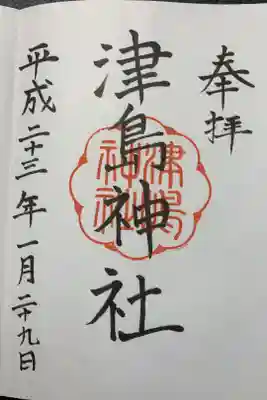 奉拝
津島神社
津島神社
平成二十三年一月二十九日